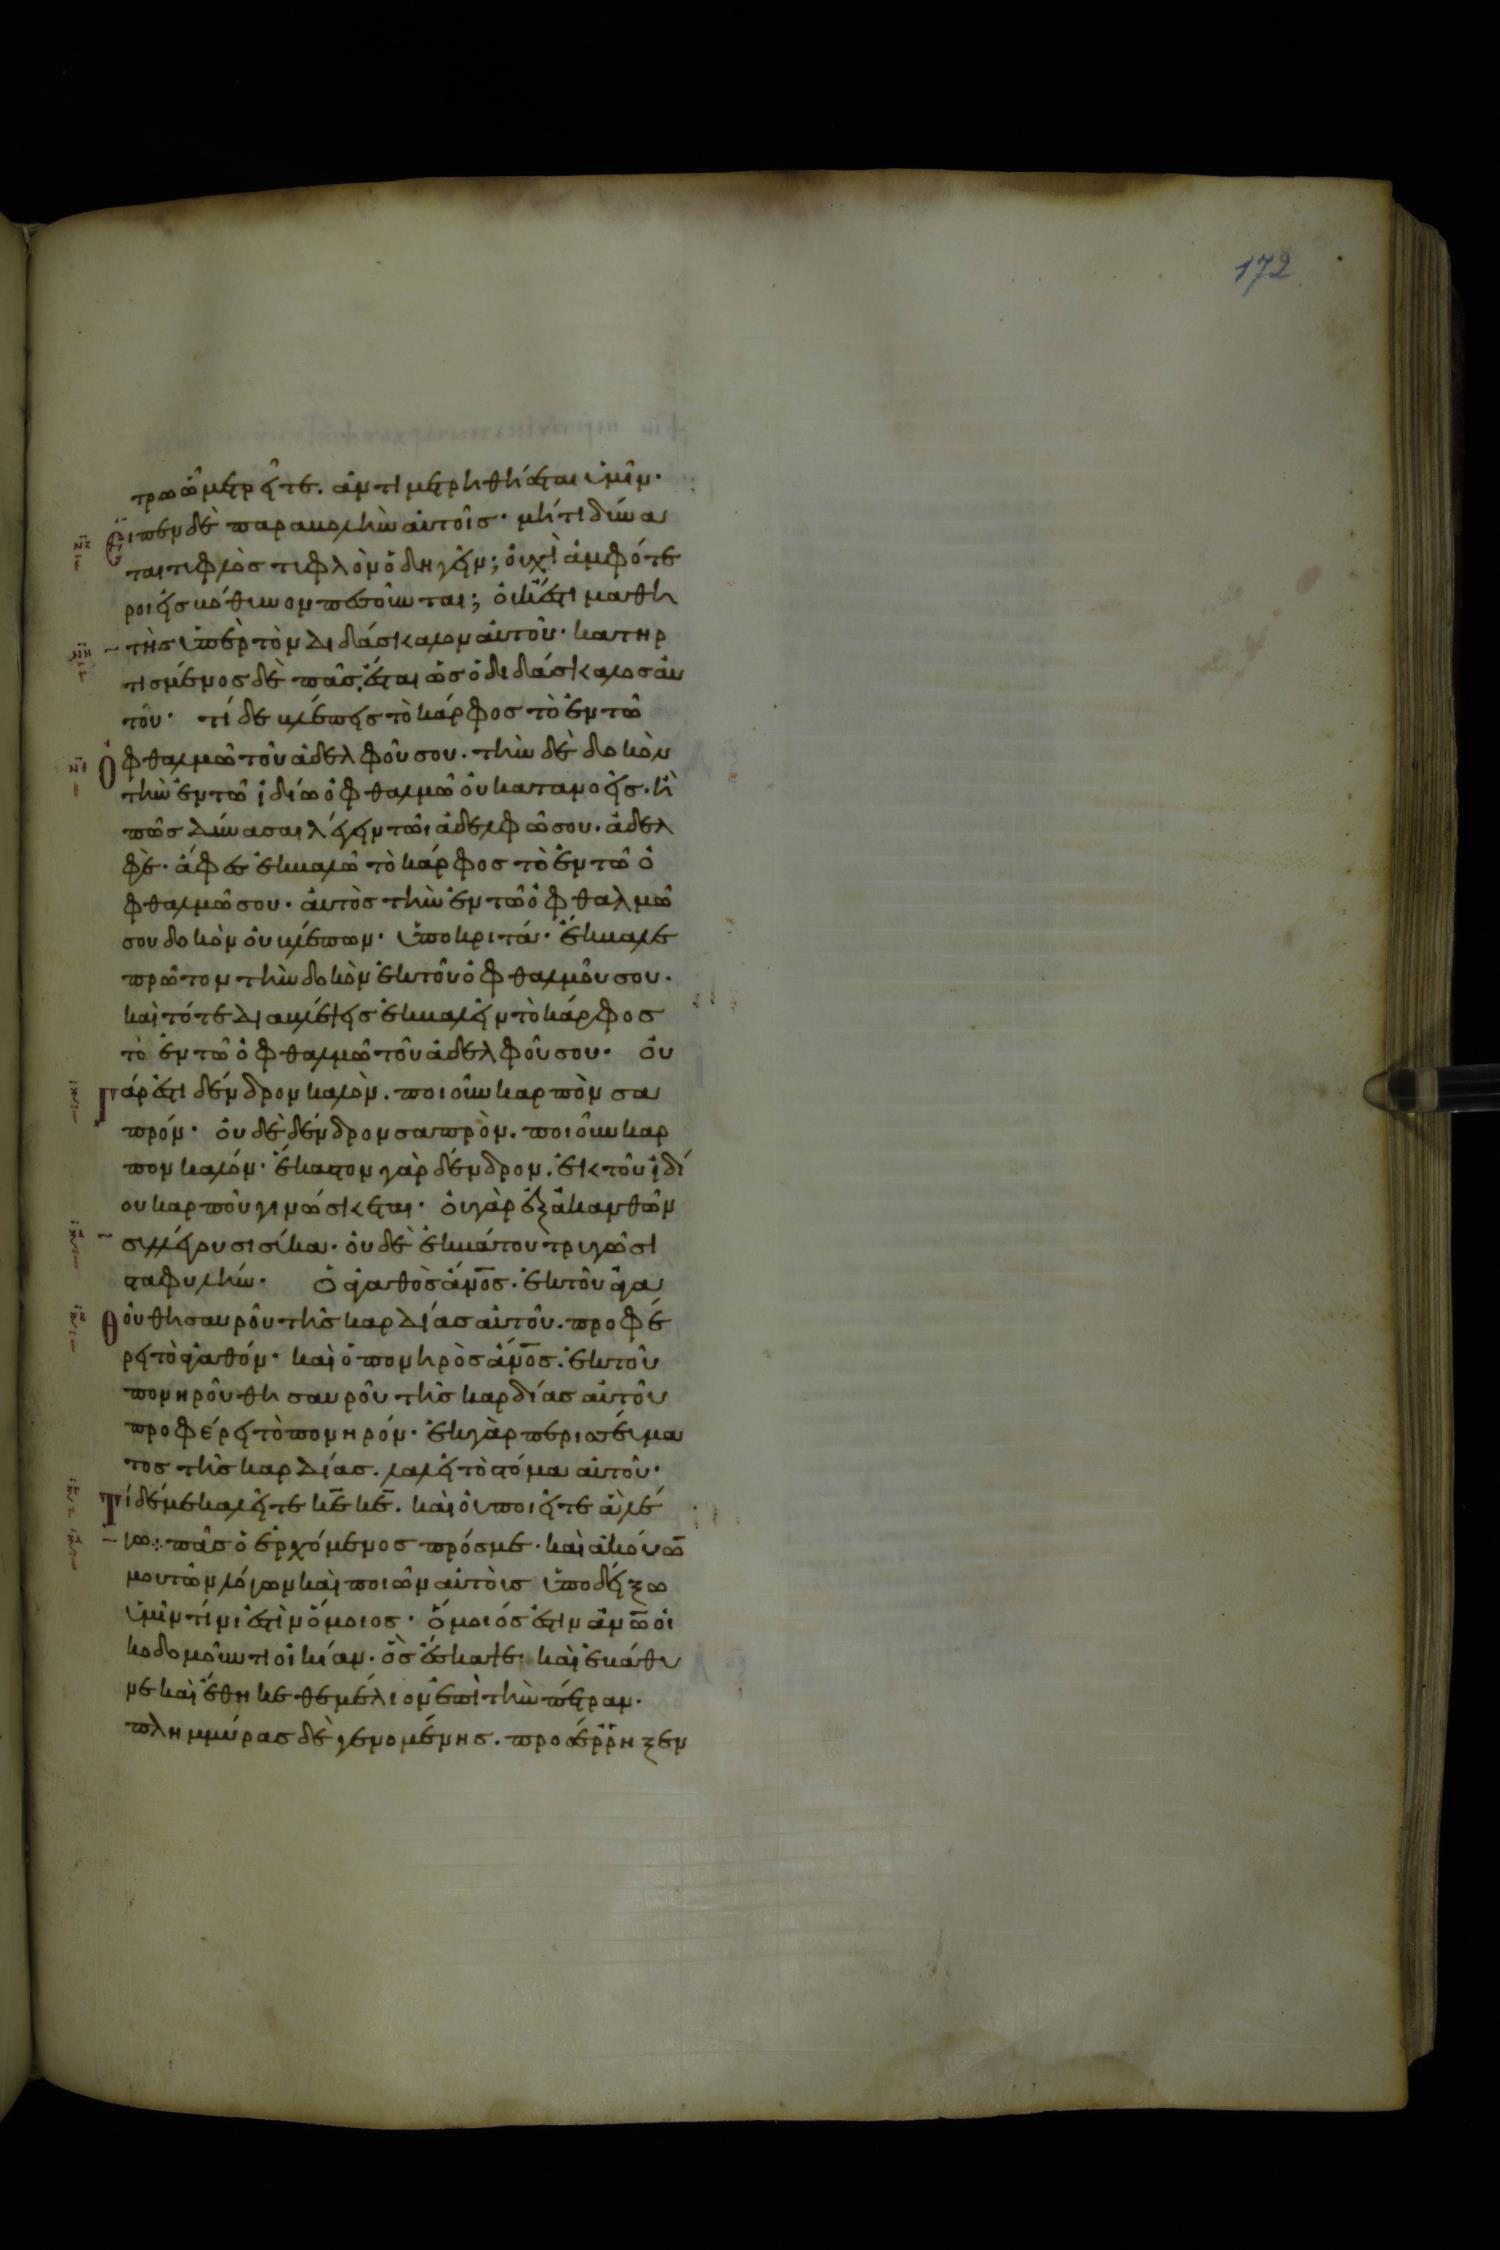 172
τρω ὧ μετρεῖτε. ἀντιμετρηθήσεται ὑμῖν·
Εἶπεν δὲ παραβολὴν αὐτοῖς· μήτι δύνα
ται τυφλὸς τυφλὸν ὁδηγεῖν; οὐχὶ ἀμφότε
ροι εἰς βόθυνον πεσοῦνται; οὐκ ἔστι μαθη
τὴς ὑπὲρ τὸν διδάσκαλον αὐτοῦ· κατηρ
τισμένος δὲ πᾶς, ἔσται ὡς ὁ διδάσκαλος αὐ
τοῦ· τί δὲ βλέπεις τὸ κάρφος τὸ ἐν τῶ
ὀφθαλμῶ τοῦ ἀδελφοῦ σου. τὴν δὲ δοκὸν
τὴν ἐν τῶ ἰδίω ὀφθαλμῶ οὐ κατανοεῖς. ἢ
πῶς δύνασαι λέγειν τῶι ἀδελφῶ σου. ἀδελ
φὲ· ἄφες ἐκβαλῶ τὸ κάρφος τὸ ἐν τῶ ὀ
φθαλμῶ σου. αὐτὸς τὴν ἐν τῶ ὀφθαλμῶ
σου δοκὸν οὐ βλέπων· ὑποκριτά· ἔκβαλε
πρῶτον τὴν δοκὸν ἐκ τοῦ ὀφθαλμοῦ σου.
καὶ τότε διαβλέψεις ἐκβαλεῖν τὸ κάρφος
τὸ ἐν τῶ ὀφθαλμῶ τοῦ ἀδελφοῦ σου· οὐ
Γάρ ἐστι δένδρον καλὸν. ποιοῦν καρπὸν σα
πρόν· οὐδὲ δένδρον σαπρὸν. ποιοῦν καρ
πον καλόν· ἕκαστον γὰρ δένδρον. ἐκ τοῦ ἰδί
ου καρποῦ γινώσκεται· οὐ γὰρ ἐξ ἀκανθῶν
συλλέγουσι σῦκα. οὐδὲ ἐκ βάτου τρυγῶσι
σταφυλήν· ὁ ἀγαθὸς ἄν̅ο̅ς̅. ἐκ τοῦ ἀγα
Θοῦ θησαυροῦ τῆς καρδίας αὐτοῦ. προφέ
ρει τὸ ἀγαθόν· καὶ ὁ πονηρὸς ἄν̅ο̅ς̅. ἐκ τοῦ
πονηροῦ θησαυροῦ τῆς καρδίας αὐτοῦ
προφέρει τὸ πονηρόν· ἐκ γὰρ περισσεύμα
τος τῆς καρδίας. λαλεῖ τὸ στόμα αὐτοῦ·
Τί δέ με καλεῖτε κ̅ε̅ κ̅ε̅. καὶ οὐ ποιεῖτε ἃ λέ
γω: πᾶς ὁ ἐρχόμενος πρός με. καὶ ἀκούω̅
μου τῶν λόγων καὶ ποιῶν αὐτοὺς ὑποδείξω
ὑμῖν τίνι ἐστὶν ὅμοιος· ὅμοιός ἐστιν ἀν̅ω̅ οἰ
κοδομοῦντι οἰκίαν. ὃς ἔσκαψε καὶ ἐβάθυ
νε καὶ ἔθηκε θεμέλιον ἐπὶ τὴν πέτραν.
πλημμύρας δὲ γενομένης. προσέρρηξεν